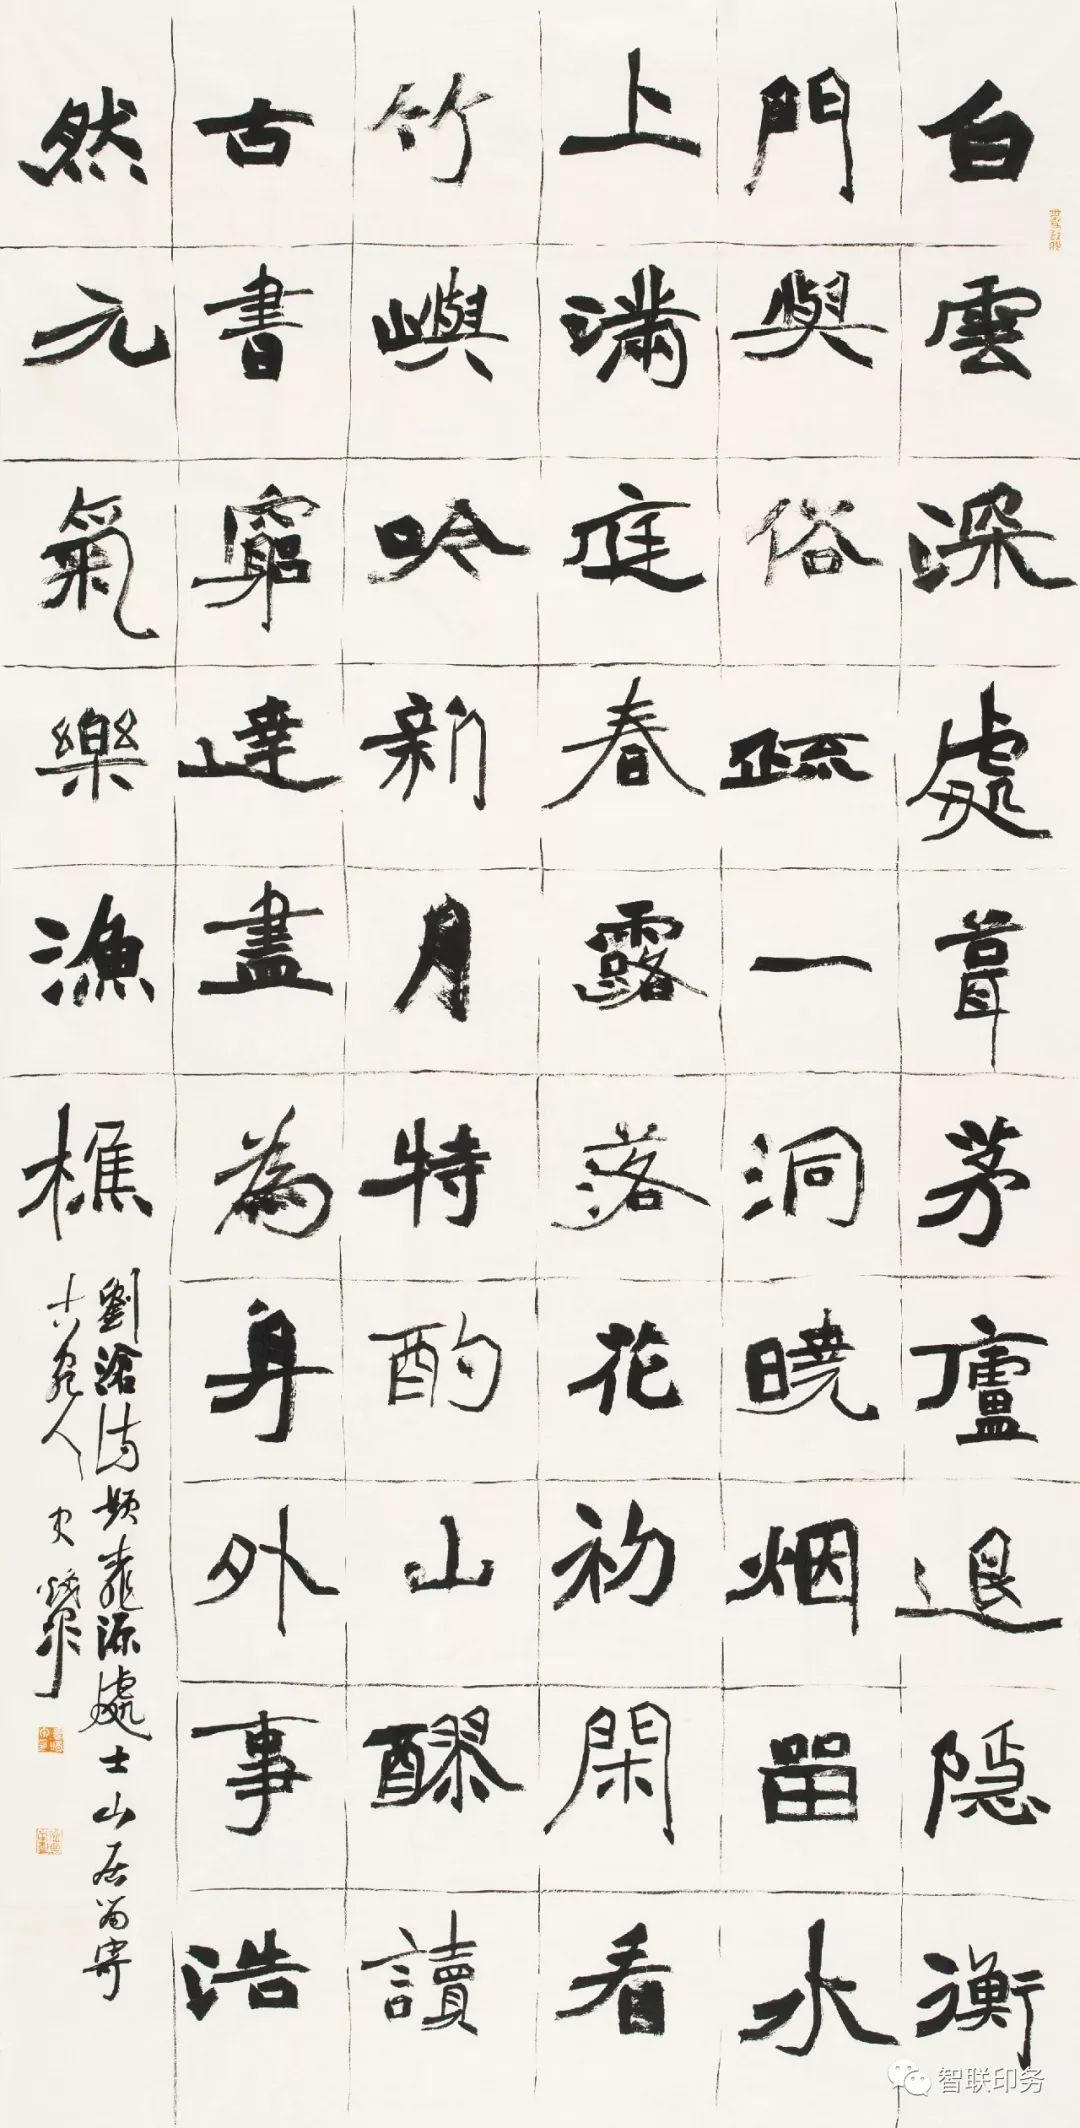 白雲深處葺茅廬退隱衡
門與俗疏一洞曉烟留水
上滿庭春露落花初閑看
竹嶼吟新月特酌山醪讀
古書窮達盡為身外事浩
然元氣樂漁樵
劉滄詩題龍源處士山居留寄
古宛人
智联印务